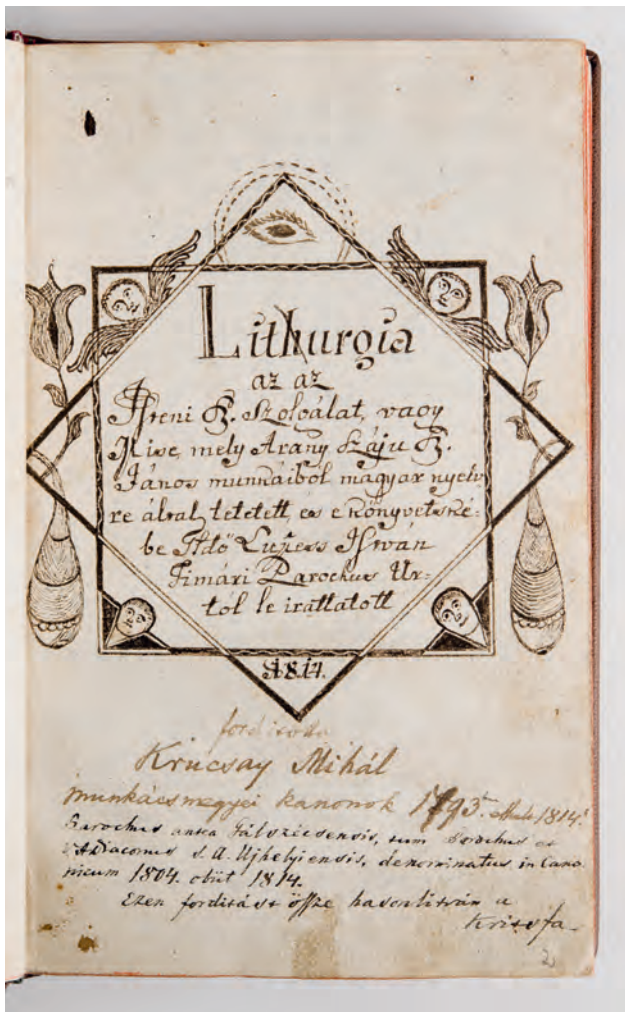 Lithurgia
az az
Isteni Sz. Szolgálat, vagy
Mise, mely Arany Száju Sz.
János munkáiból magyar nyelv
re által tétetett, és e könyvetské=
be Tdő Lupess Istvàn
Timári Parochus Ur=
tól le irattatott
1814.
forditotta
Krucsay Mihál
munkácsmegyei kanonok 1793
Parochus antea Gálszécsensis, tum Parochus et
V. ADiaconus S. A. Ujhelyiensis, denominatus in Cano
nicum 1804. obiit 1814.
Ezen forditást össze hasonlitván a
Krisfa
2